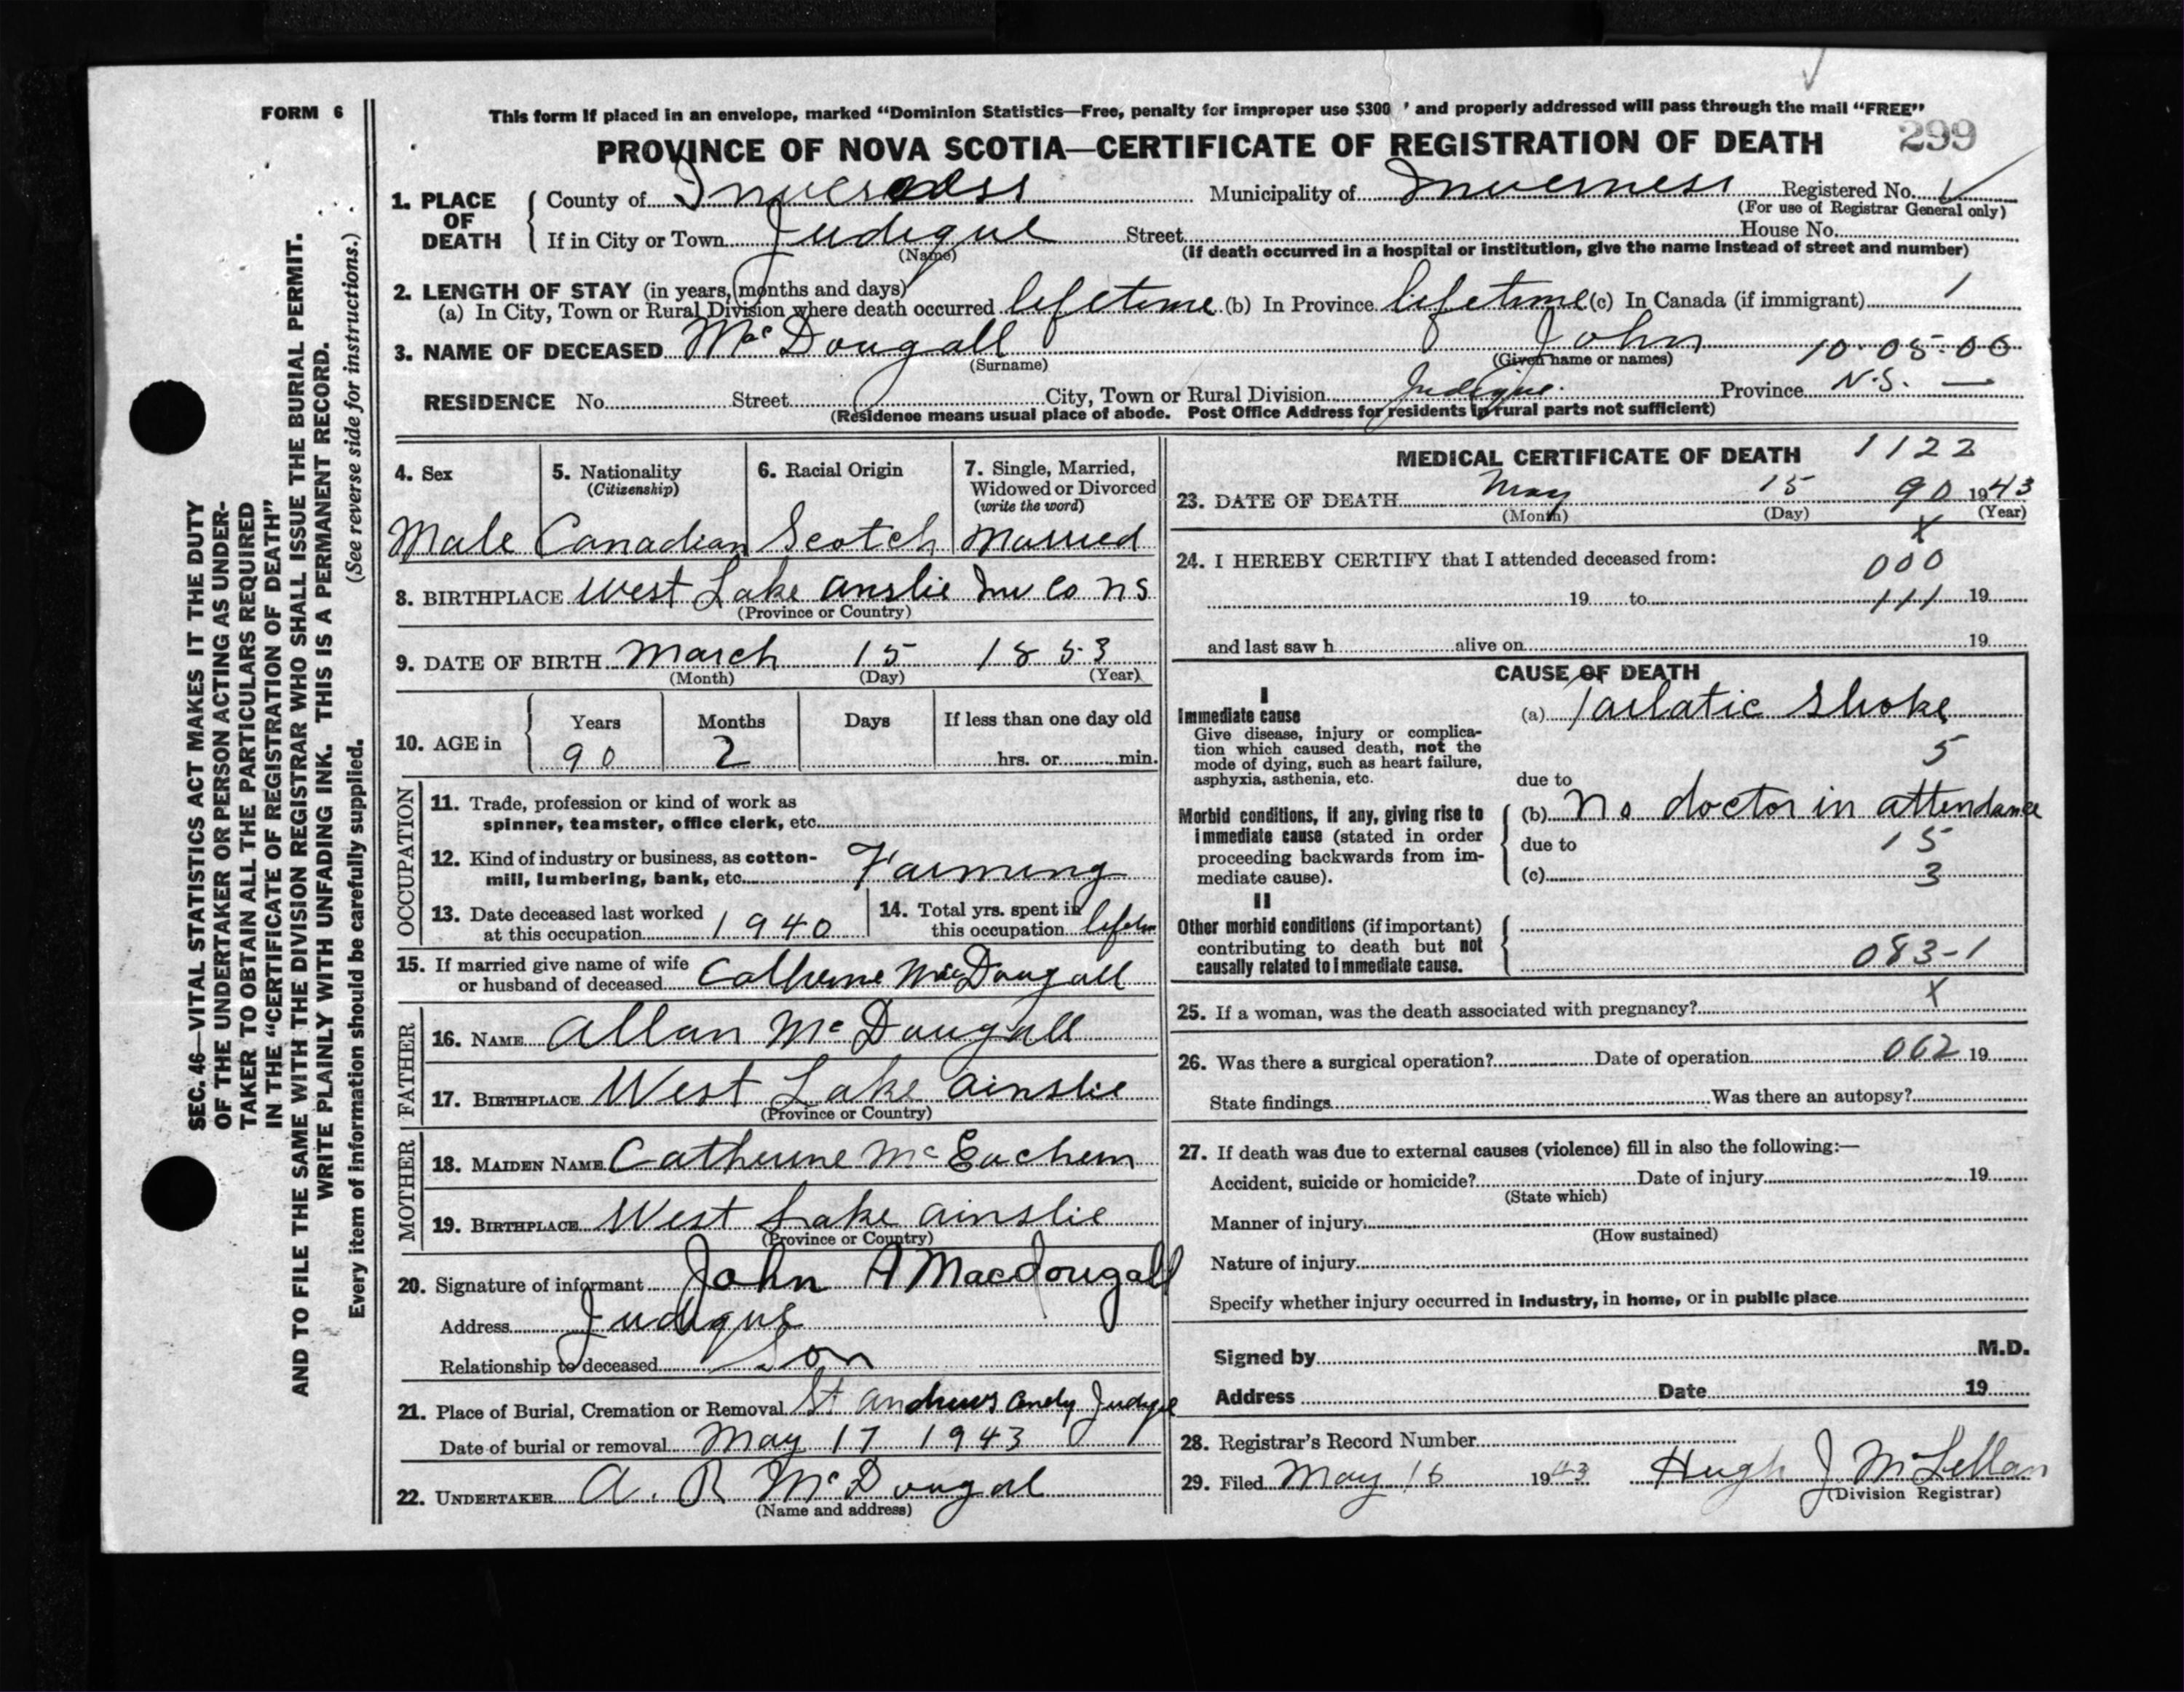 FORM 6
This form if placed in an envelope, marked “Dominion Statistics—Free, penalty for improper use $300 ’ and properly addressed will pass through the mail “FREE”
PROVINCE OF NOVA SCOTIA—CERTIFICATE OF REGISTRATION OF DEATH 299
1. PLACE OF DEATH { County of Inverness Municipality of Inverness Registered No.
(For use of Registrar General only)
If in City or Town Judique Street House No.
(Name) (If death occurred in a hospital or institution, give the name instead of street and number)
2. LENGTH OF STAY (in years, months and days)
(a) In City, Town or Rural Division where death occurred lifetime (b) In Province lifetime (c) In Canada (if immigrant)
3. NAME OF DECEASED McDougall John 10-05-00
(Surname) (Given name or names)
RESIDENCE No. Street City, Town or Rural Division Judique Province N.S. —
(Residence means usual place of abode. Post Office Address for residents in rural parts not sufficient)
4. Sex 5. Nationality (Citizenship) 6. Racial Origin 7. Single, Married, Widowed or Divorced (write the word)
Male Canadian Scotch Married
8. BIRTHPLACE West Lake Ainslie Inv Co NS
(Province or Country)
9. DATE OF BIRTH March 15 1853
(Month) (Day) (Year)
10. AGE in { Years Months Days If less than one day old
90 2 hrs. or min.
OCCUPATION
11. Trade, profession or kind of work as
spinner, teamster, office clerk, etc.
12. Kind of industry or business, as cotton-
mill, lumbering, bank, etc. Farming
13. Date deceased last worked
at this occupation 1940
14. Total yrs. spent in
this occupation
15. If married give name of wife
or husband of deceased Catherine MacDougall
FATHER
16. NAME Allan McDougall
17. BIRTHPLACE West Lake Ainslie
(Province or Country)
MOTHER
18. MAIDEN NAME Catherine McEachern
19. BIRTHPLACE West Lake Ainslie
(Province or Country)
20. Signature of informant John A MacDougall
Address Judique
Relationship to deceased Son
21. Place of Burial, Cremation or Removal St Andrews Judique
Date of burial or removal May 17 1943
22. UNDERTAKER A. R McDougal
(Name and address)
MEDICAL CERTIFICATE OF DEATH 1122
23. DATE OF DEATH May 15 90 1943
(Month) (Day) (Year)
x
24. I HEREBY CERTIFY that I attended deceased from:
000
19 to 111 19
and last saw h alive on 19
CAUSE OF DEATH
I
Immediate cause
Give disease, injury or complica-
tion which caused death, not the
mode of dying, such as heart failure,
asphyxia, asthenia, etc.
(a) stroke
5
due to
Morbid conditions, if any, giving rise to
immediate cause (stated in order
proceeding backwards from im-
mediate cause).
(b) No doctor in attendance
due to 15
(c) 3
II
Other morbid conditions (if important)
contributing to death but not
causally related to immediate cause.
083-1
x
25. If a woman, was the death associated with pregnancy?
26. Was there a surgical operation? Date of operation 062 19
State findings Was there an autopsy?
27. If death was due to external causes (violence) fill in also the following:—
Accident, suicide or homicide? Date of injury 19
(State which)
Manner of injury
(How sustained)
Nature of injury
Specify whether injury occurred in industry, in home, or in public place
Signed by M.D.
Address Date 19
28. Registrar's Record Number
29. Filed May 16 1943 Hugh J McLellan
(Division Registrar)
SEC. 46—VITAL STATISTICS ACT MAKES IT THE DUTY
OF THE UNDERTAKER OR PERSON ACTING AS UNDER-
TAKER TO OBTAIN ALL THE PARTICULARS REQUIRED
IN THE “CERTIFICATE OF REGISTRATION OF DEATH”
AND TO FILE THE SAME WITH THE DIVISION REGISTRAR WHO SHALL ISSUE THE BURIAL PERMIT.
WRITE PLAINLY WITH UNFADING INK. THIS IS A PERMANENT RECORD.
Every item of information should be carefully supplied. (See reverse side for instructions.)